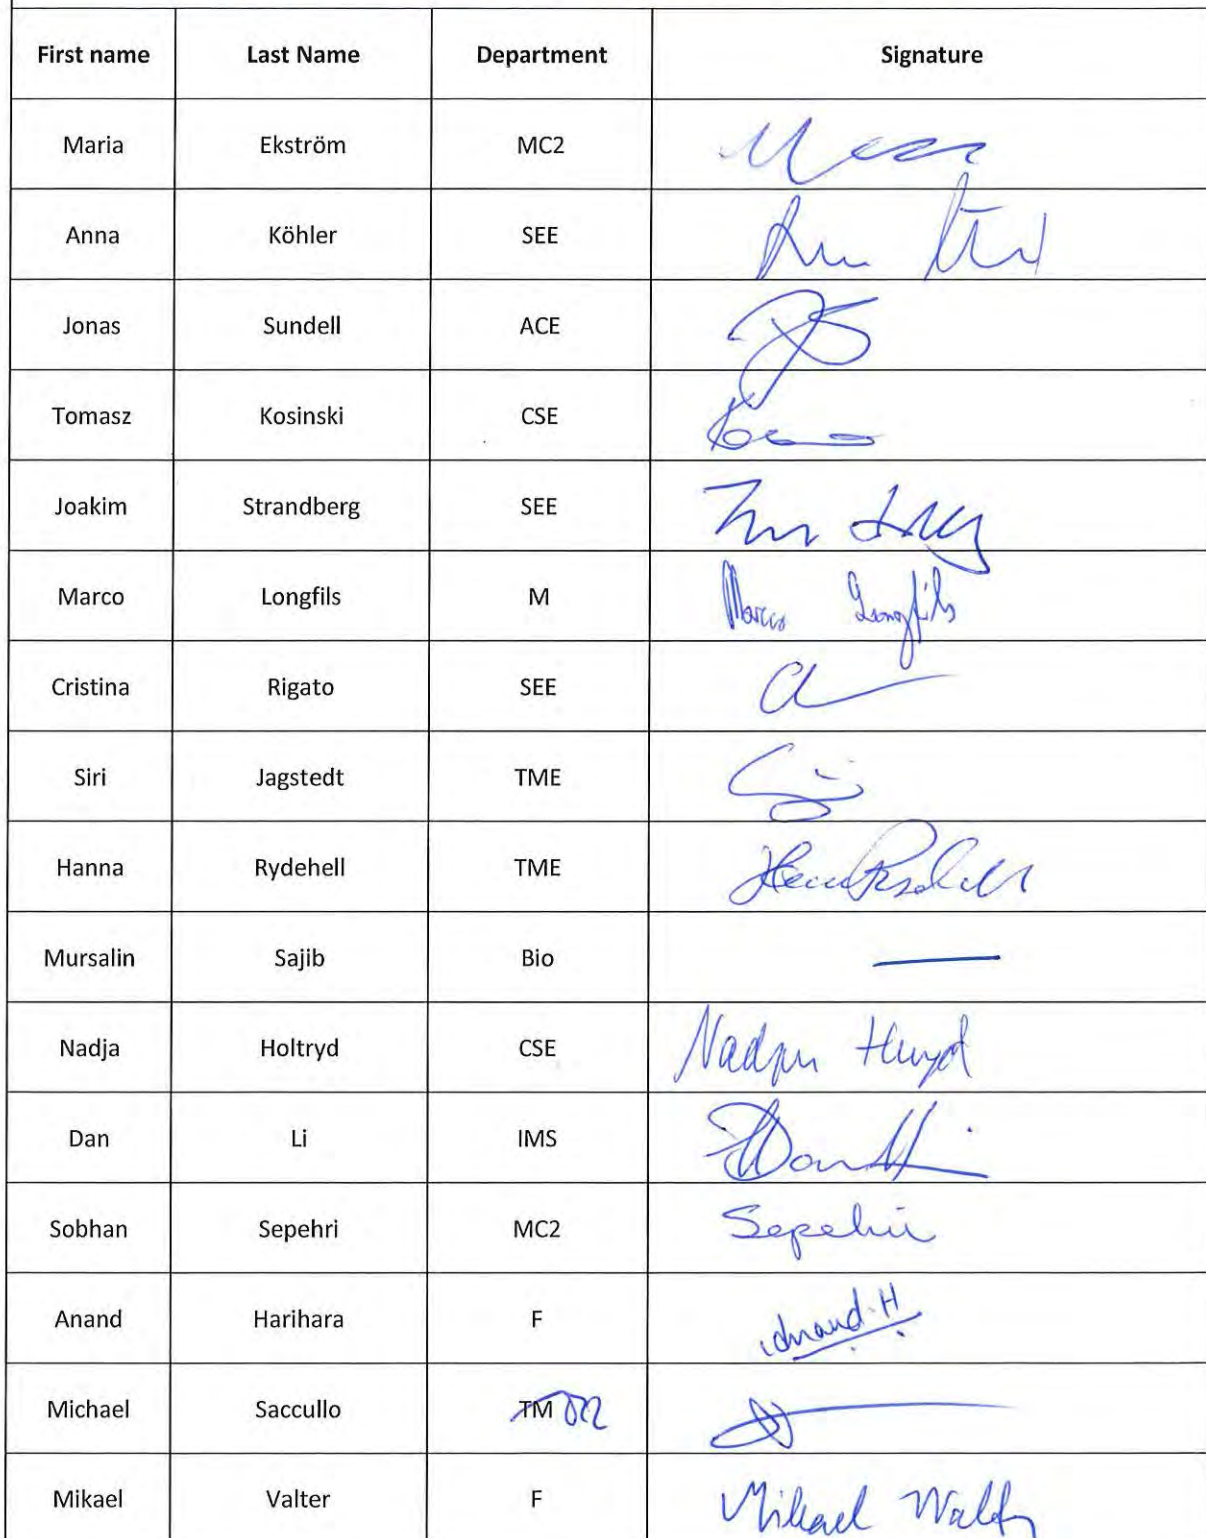 First name Last Name Department Signature
Maria Ekström MC2
Anna Köhler SEE
Jonas Sundell ACE
Tomasz Kosinski CSE
Joakim Strandberg SEE
Marco Longfils M Marco Longfils
Cristina Rigato SEE
Siri Jagstedt TME
Hanna Rydehell TME
Mursalin Sajib Bio —
Nadja Holtryd CSE Nadja
Dan Li IMS Dan Li
Sobhan Sepehri MC2 Sepehri
Anand Harihara F Anand.H
Michael Saccullo TM
Mikael Valter F Mikael